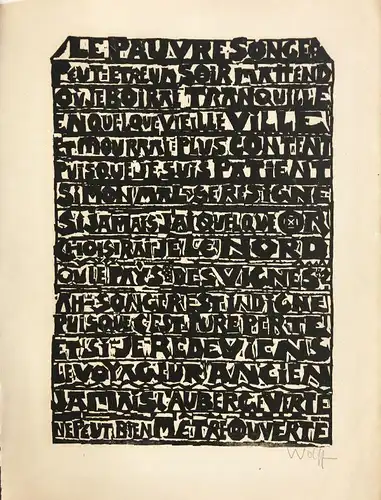 LE PAUVRE SONGE:
PEUT-ETRE UM SOIR M'ATTEND
OU JE BOIRAI TRANQUILLE
EN QUELQUE VIEILLE VILLE
ET MOURRAI PLUS CONTENT
PUISQUE JE SUIS PATIENT
SI MON MAL SE RESIGNE
SI JAMAIS J'AI QUELQUE OR
CHOISIRAI JE LE NORD
OU LE PAYS DES VIGNES
AH-SONGER EST INDIGNE
PUISQUE C'EST PURE PERTE
ET SI JE REDEVIENS
LE VOYAGEUR ANCIEN
JAMAIS L'AUBERGE VERTE
NE PEUT BIEN M'ÊTRE OUVERTE
Wolff